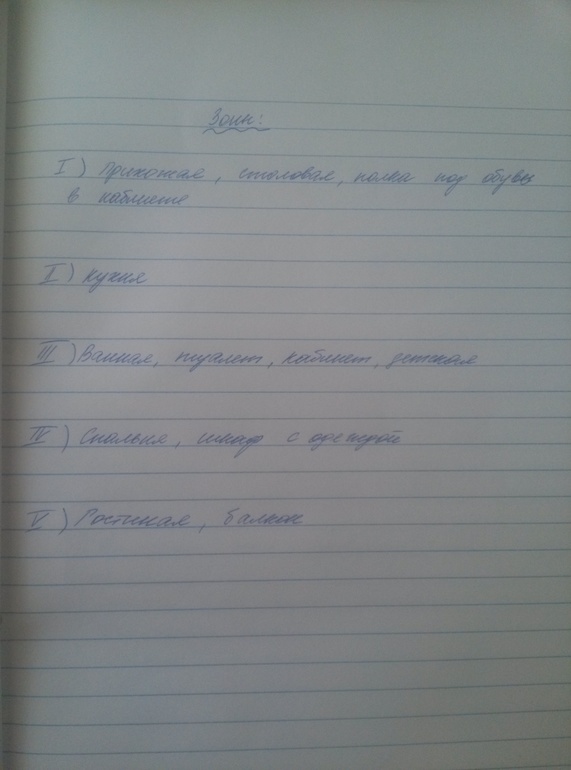 Зоны:
I) Прихожая, столовая, полка под обувь
в кабинете
II) Кухня
III) Ванная, туалет, кабинет, детская
IV) Спальня, шкаф с одеждой
V) Гостиная, балкон